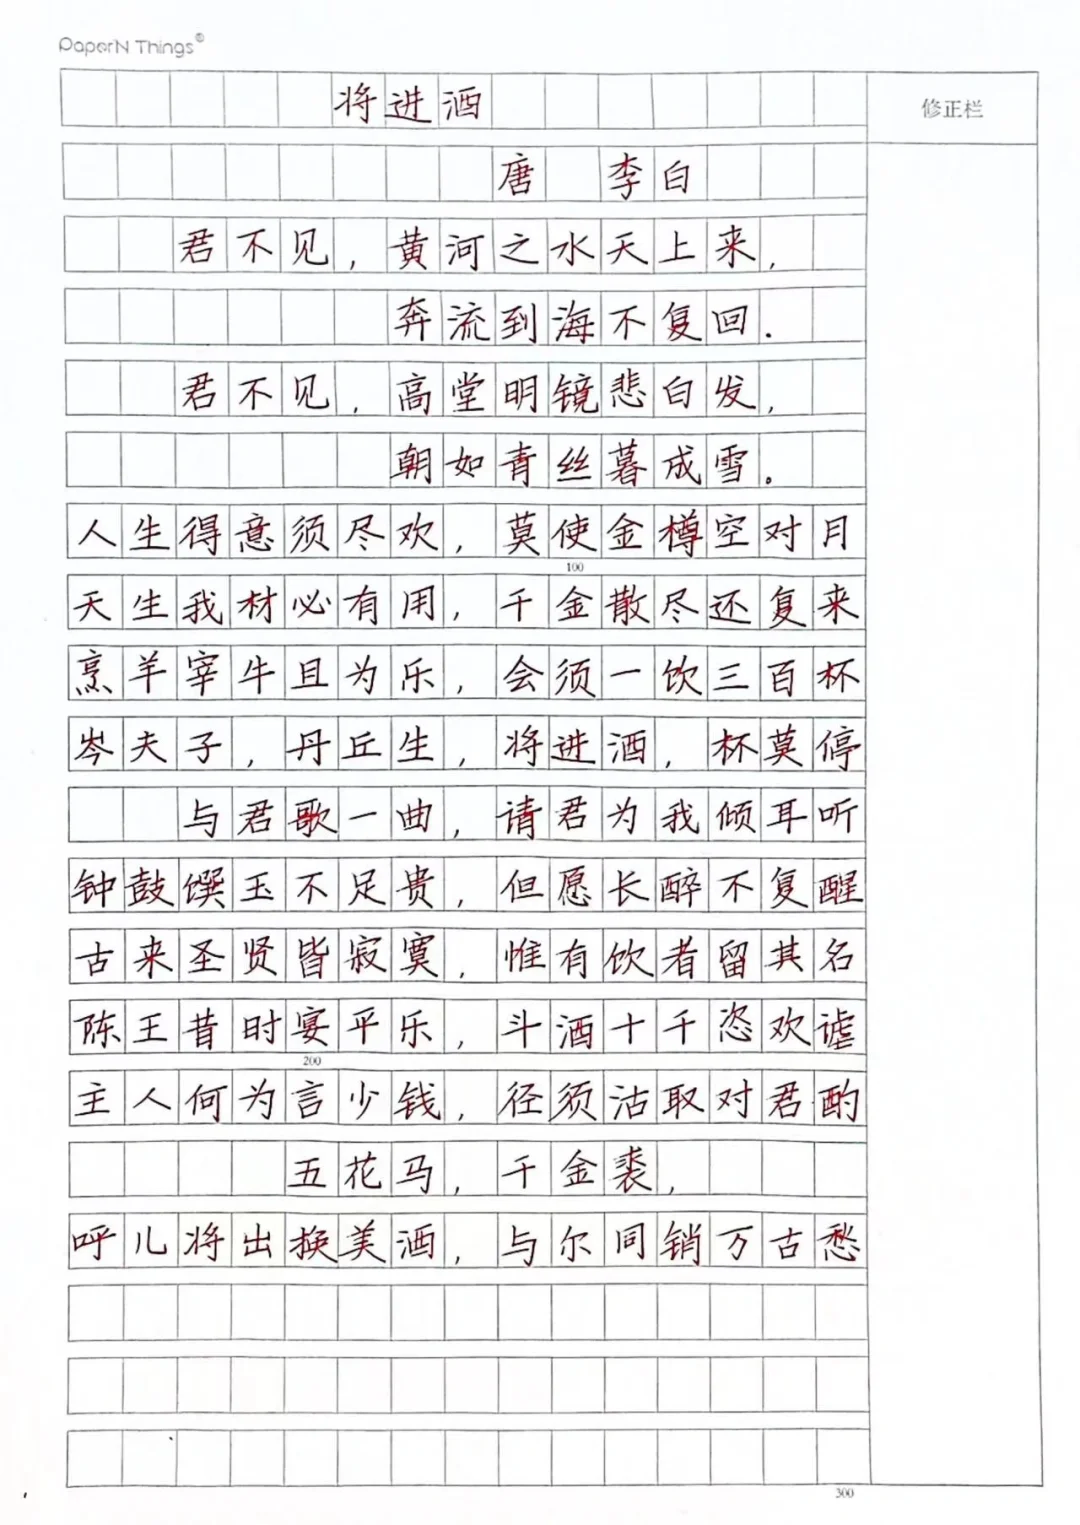 PaperN Things®
将进酒
修正栏
唐 李白
君不见，黄河之水天上来，
奔流到海不复回.
君不见，高堂明镜悲白发，
朝如青丝暮成雪。
人生得意须尽欢，莫使金樽空对月
100
天生我材必有用，千金散尽还复来
烹羊宰牛且为乐，会须一饮三百杯
岑夫子，丹丘生，将进酒，杯莫停
与君歌一曲，请君为我倾耳听
钟鼓馔玉不足贵，但愿长醉不复醒
古来圣贤皆寂寞，惟有饮者留其名
陈王昔时宴平乐，斗酒十千恣欢谑
200
主人何为言少钱，径须沽取对君酌
五花马，千金裘，
呼儿将出换美酒，与尔同销万古愁
300